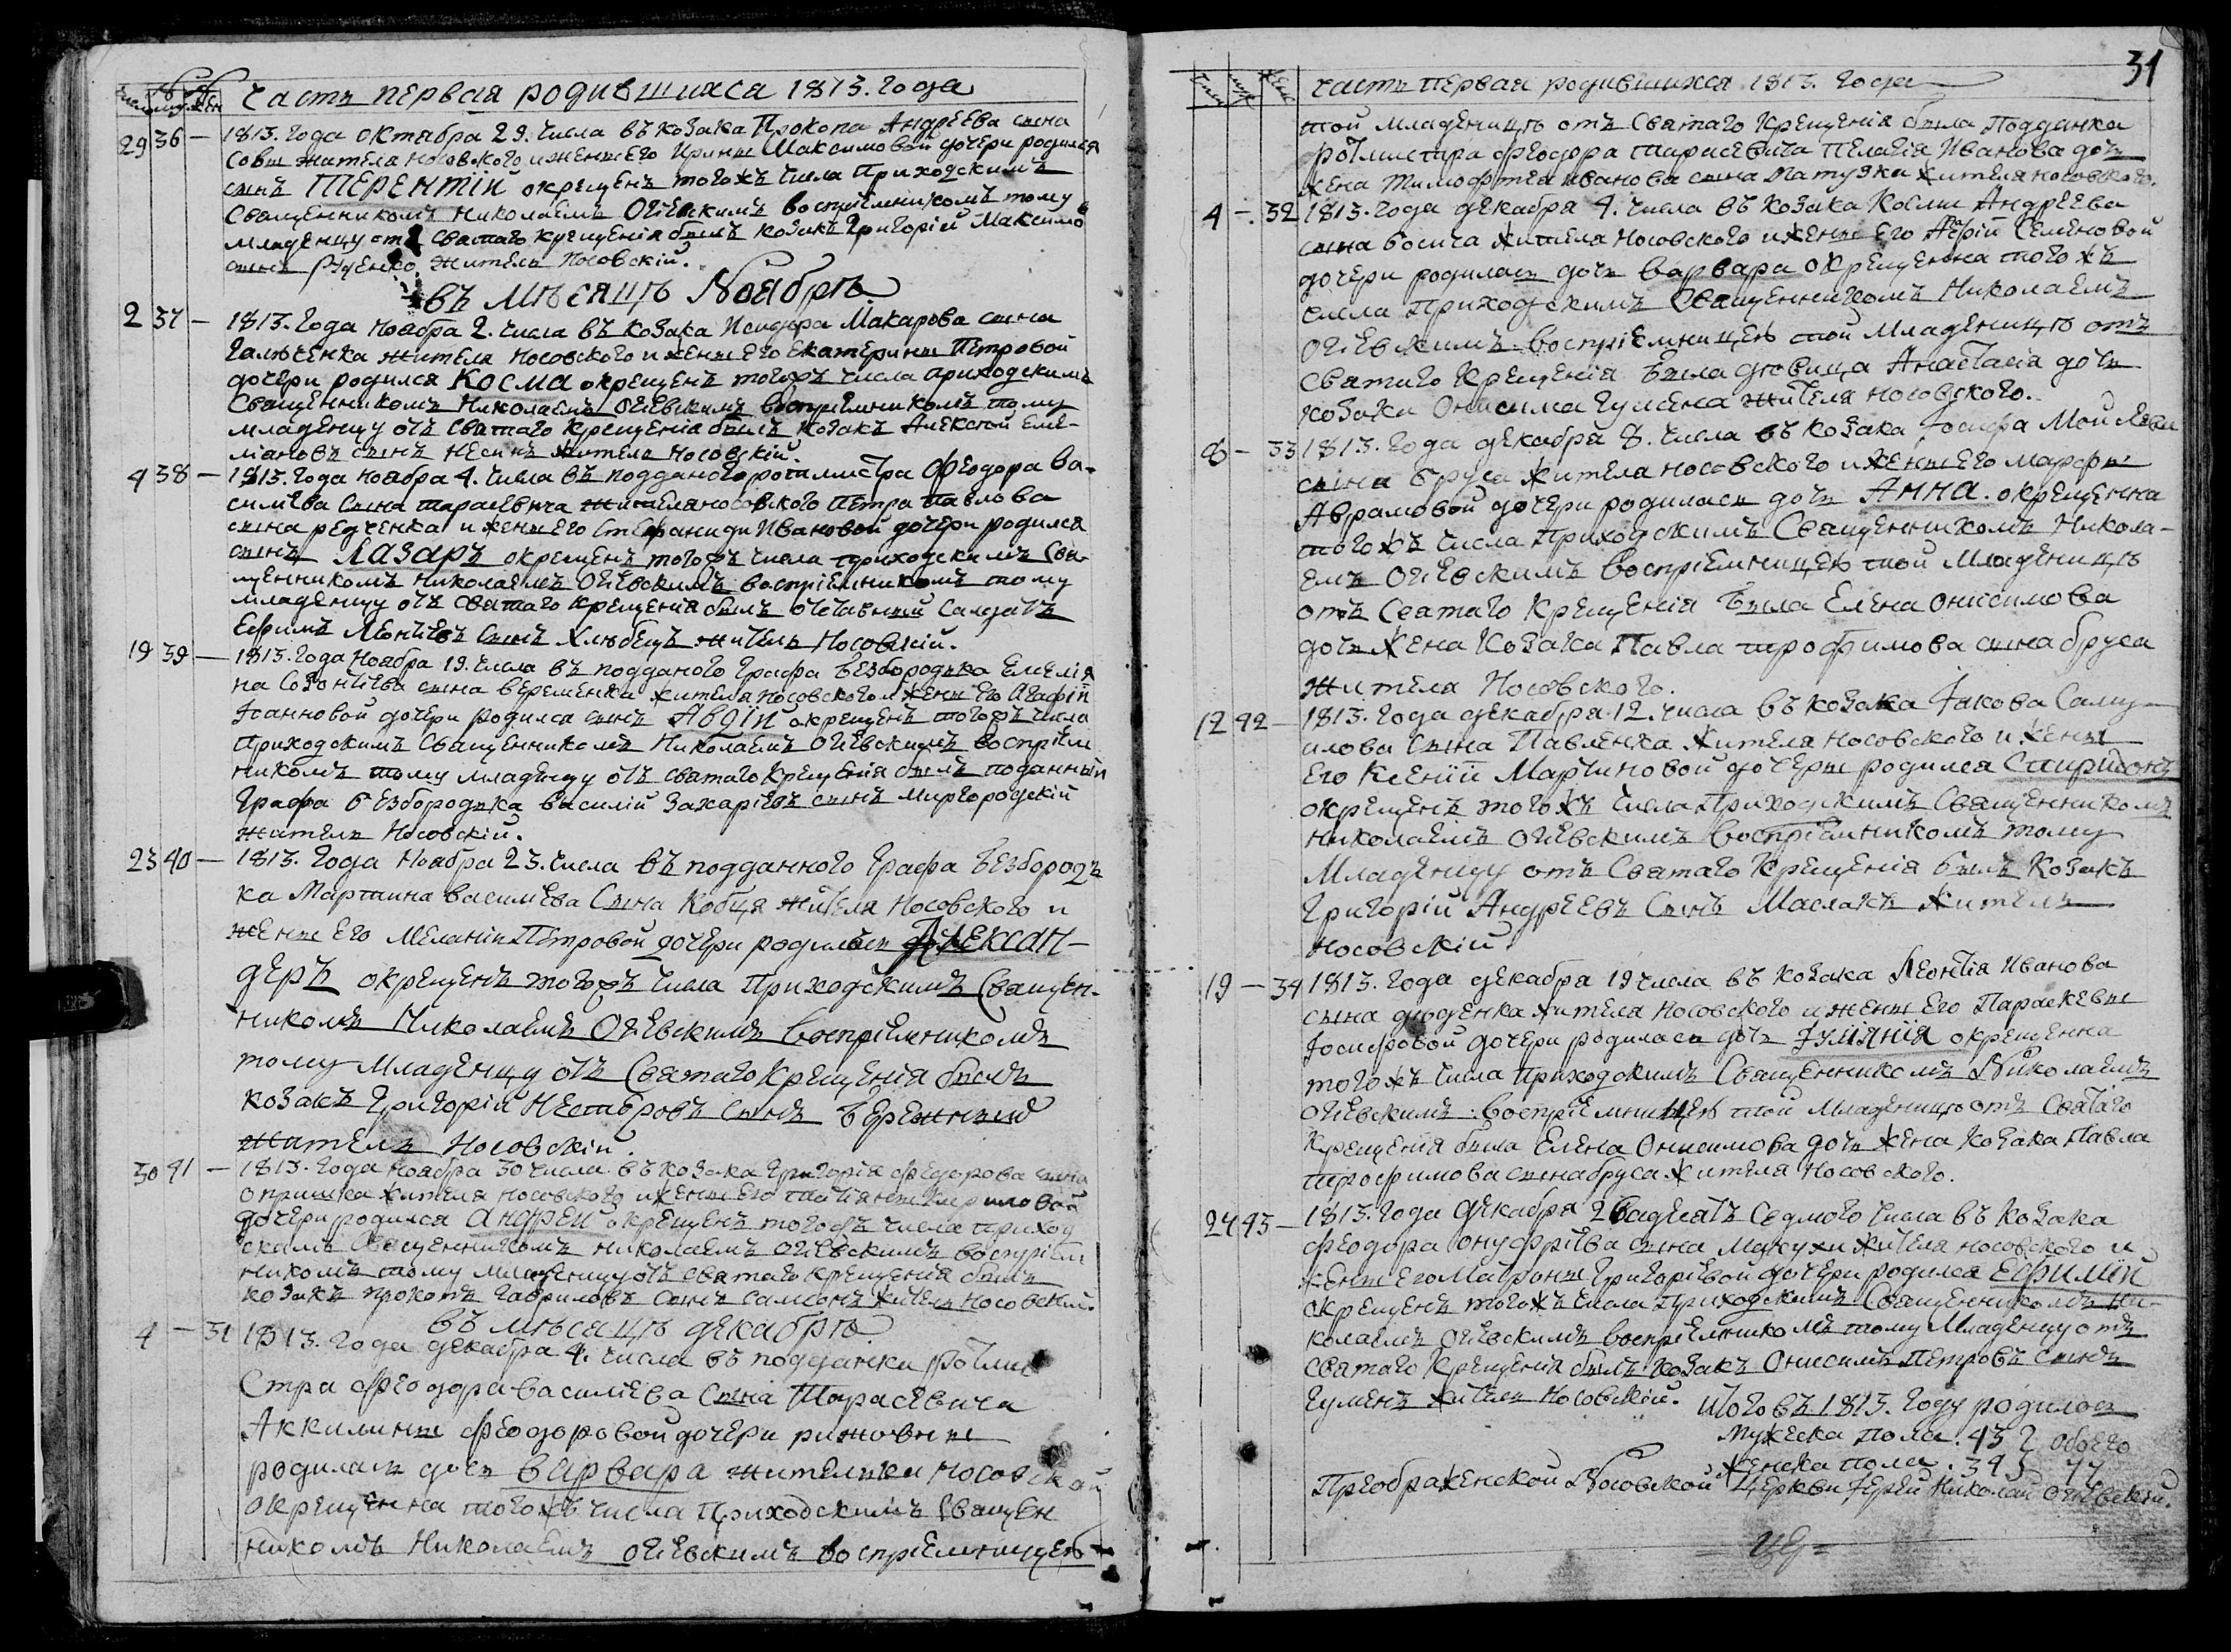 Часть первая родившихся 1813. года
29 36 — 1813. года октября 29. числа въ козака Прокопа Андреева сына
Совы жителя носовского и жены его Ирины Максимовой дочери родился
сынъ ТЕРЕНТІЙ окрещенъ тогожъ числа Приходскимъ
Священникомъ Николаемъ Огіевскимъ воспріемникомъ тому
младенцу отъ святаго крещенія былъ козакъ Григорій Максимовъ
сынъ житель Носовскій.
въ мѣсяцѣ Ноябрѣ
2 37 — 1813. года ноября 2. числа въ козака Исидора Макарова сына
Галюченка жителя носовского и жены его Екатерины Петровой
дочери родился Косма окрещенъ тогожъ числа приходскимъ
Священникомъ Николаемъ Огіевскимъ воспріемникомъ тому
младенцу отъ святаго крещенія былъ козакъ Алексѣй Еме-
ліановъ сынъ Несинъ житель Носовскій.
4 38 — 1813. года ноября 4. числа въ подданого ротмистра Феодора Ва-
силіева сына тарасевича жителя носовского Петра Павлова
сына редченка и жены его Стефаниды Ивановой дочери родился
сынъ Лазаръ окрещенъ тогожъ числа приходскимъ Свя-
щенникомъ Николаемъ Огіевскимъ воспріемникомъ тому
младенцу отъ святаго крещенія былъ отставный салдатъ
Ефимъ Леонтіевъ сынъ Хлюбецъ житель Носовскій.
19 39 — 1813. года ноября 19. числа въ подданого графа Безбородька Емелія
на Созонтіева сына веременка жителя носовского и жены его Агафіи
Іоанновой дочери родился сынъ Авдій окрещенъ тогожъ числа
приходскимъ Священникомъ Николаемъ Огіевскимъ воспріем
никомъ тому младенцу отъ святаго крещенія былъ поданный
графа Безбородька василій Захаріевъ сынъ Миргородскій
житель Носовскій.
23 40 — 1813. года ноября 23. числа въ подданного графа Безбородь
ка Мартина василіева сына Кобця жителя Носовского и
жены его Меланіи Петровой дочери родился Алексан-
деръ окрещенъ тогожъ числа Приходскимъ Священ-
никомъ Николаемъ Огіевскимъ воспріемникомъ
тому младенцу отъ Святаго Крещенія былъ
козакъ Григорій Несторовъ сынъ Бережный
житель Носовскій.
30 41 — 1813. года ноября 30 числа въ козака Григорія Федорова сына
опришка жителя носовского и жены его татіяны Кириловой
дочери родился андрей окрещенъ тогожъ числа приход
скимъ Священникомъ николаемъ огіевскимъ воспріем
никомъ тому младенцу отъ святаго крещенія былъ
козакъ прокопъ Гавриловъ сынъ самсонъ житель носовскій.
въ мѣсяцѣ декабрѣ
4 — 31 1813. года декабря 4. числа въ подданки ротми
стра Феодора василіева сына Тарасевича
Аккилины феодоровой дочери
родилась дочь варвара жителки носовской
окрещенна тогожъ числа Приходскимъ Священ
никомъ Николаемъ огіевскимъ воспріемницею
31
часть первая родившихся 1813. года
той младеницѣ отъ Святаго Крещенія была Подданка
ротмистра феодора тарасевича пелагія Иванова дочь
жена Тимофѣя иванова сына Латузка жителя носовского.
4 — 32 1813. года декабря 4. числа въ козака Космы Андреева
сына босича жителя Носовского и жены его Агафіи Семеновой
дочери родилась дочь варвара окрещенна тогожъ
числа Приходскимъ Священникомъ Николаемъ
Огіевскимъ воспріемницею той младеницѣ отъ
святаго Крещенія Была дювица Анастасія дочь
козака Онисима Гумена жителя носовского.
8 — 33 1813. года декабря 8. числа въ козака Іосифа Мойсеева
сына бруса жителя носовского и жены его Марфы
Аврамовой дочери родилась дочь Анна. окрещенна
тогожъ числа Приходскимъ Священникомъ Никола-
емъ Огіевскимъ воспріемницею той младеницѣ
отъ Святаго Крещенія Была Елена Онисимова
дочь Жена Козака Павла трофимова сына бруса
жителя Носовского.
12 42 — 1813. года декабря 12. числа въ козака Іакова Саму-
илова сына Павленка жителя носовского и жены
его Ксеніи Мартиновой дочери родился Спиридонъ
окрещенъ тогожъ числа Приходскимъ Священникомъ
николаемъ огіевскимъ воспріемникомъ тому
Младенцу отъ Святаго Крещенія былъ Козакъ
Григорій Андреевъ Сынъ Маслакъ житель
носовскій
19 — 34 1813. года декабря 19 числа въ козака Леонтія Иванова
сына дюденка жителя носовского и жены его Параскевы
Іосифовой дочери родилась дочь Іуліянія окрещенна
тогожъ числа приходскимъ Священникомъ Николаемъ
огіевскимъ воспріемницею той младеницѣ отъ Святаго
крещенія была Елена Онисимова дочь жена козака Павла
трофимова сына бруса жителя Носовского.
27 43 — 1813. года декабря двадесять седмого числа въ козака
феодора онуфріева сына жителя носовского и
жены его Матроны Григоріевой дочери родился Ефимій
окрещенъ тогожъ числа Приходскимъ Священникомъ Ни-
колаемъ огіевскимъ воспріемникомъ тому младенцу отъ
святаго крещенія былъ козакъ Онисимъ Петровъ сынъ
Гуменъ житель носовскій.
Итого въ 1813. году родилось
Мужеска пола. 43 обоего
женска пола. 34 77
Преображенской Носовской Церкви Іерей Николай Огіевскій.